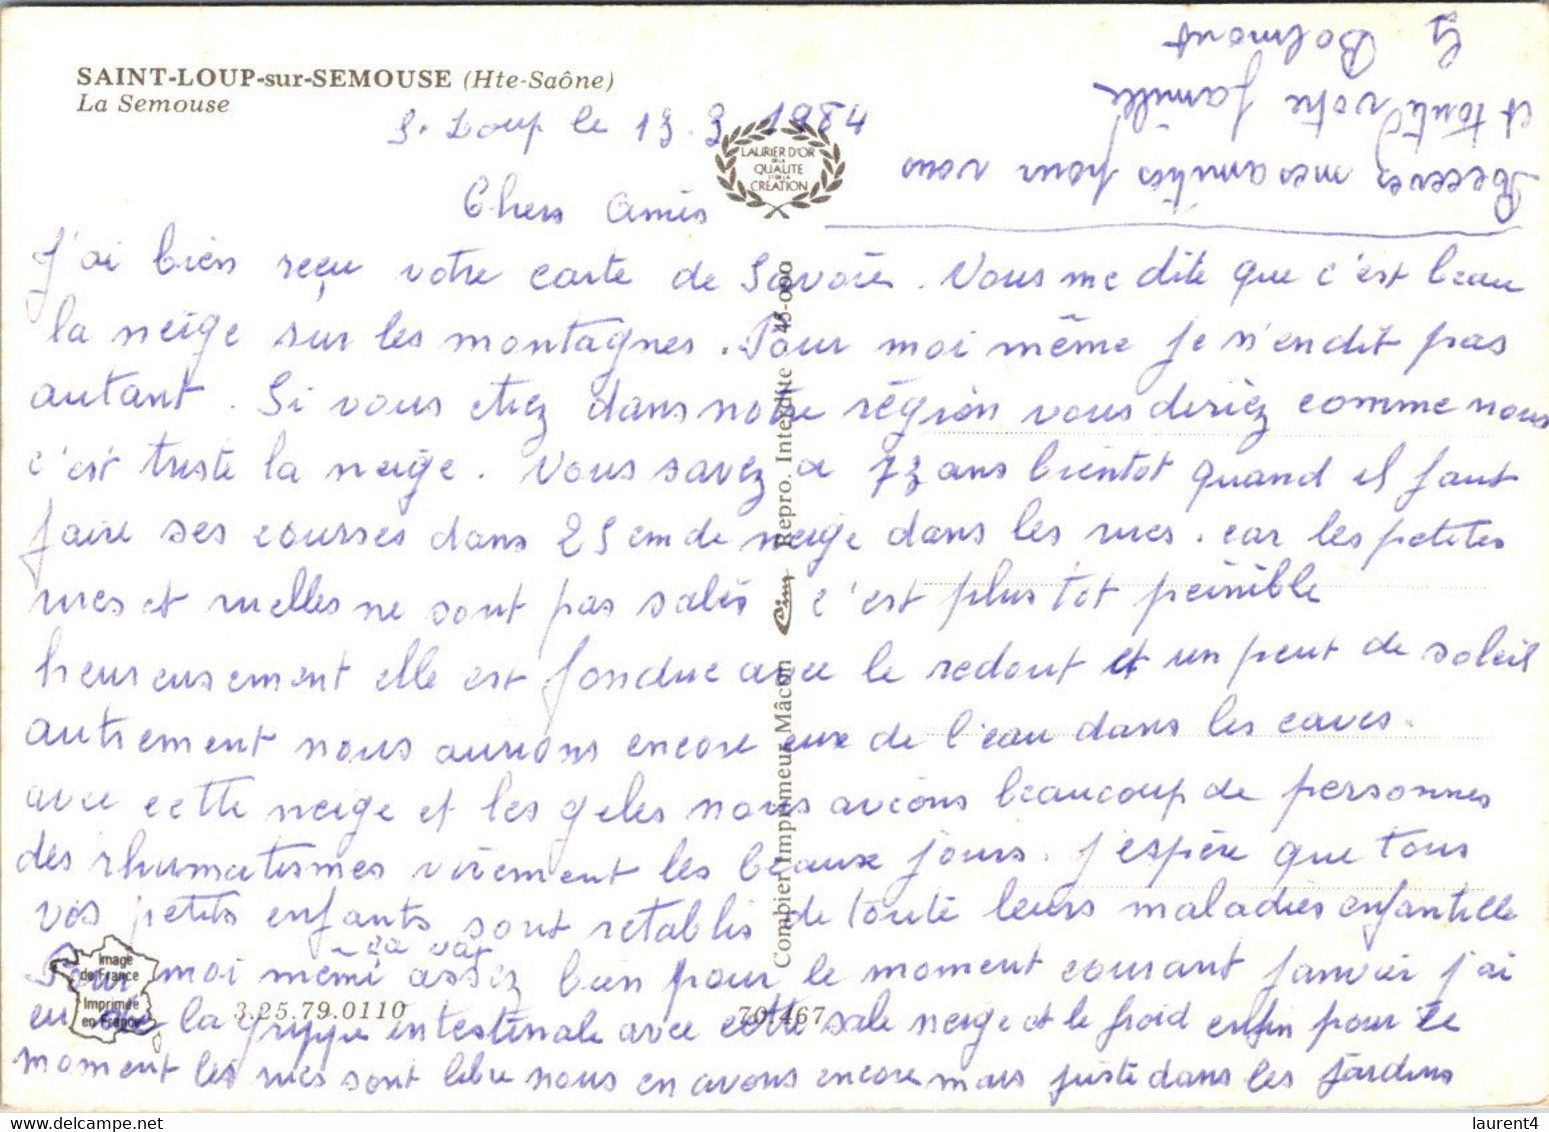 SAINT-LOUP-sur-SEMOUSE (Hte-Saône)
La Semouse
S. Loup le 13.3 1984
LAURIER D'OR
DE LA
QUALITE
ET DE LA
CREATION
Chers amis
J'ai bien reçu votre carte de Savoie. Vous me dite que c'est beau
la neige sur les montagnes. Pour moi même je n'en dit pas
autant. Si vous etiez dans notre région vous diriez comme nous
c'est triste la neige. Vous savez a 73 ans bientot quand il faut
faire ses courses dans 25 cm de neige dans les rues. car les petites
rues et ruelles ne sont pas salés c'est plus tot peinible
heureusement elle est fondue avec le redout et un peut de soleil
autrement nous aurions encore eux de l'eau dans les caves.
avec cette neige et les geles nous avions beaucoup de personnes
des rhumatismes virement les beaux jours. J'espère que tous
vos petits enfants sont retablis de toute leurs maladies enfantille
Pour moi même ça vat assez bien pour le moment courant janvier j'ai
eu la grippe intestinale avec cette sale neige et le froid enfin pour le
moment les rues sont libre nous en avons encore mais juste dans les jardins
Recevez mes amitiés pour vous
et toute votre famille
G Bolmont
Combier Imprimeur Mâcon Cim Repro. Interdite 45-000
Image
de France
Imprimée
en France
3.25.79.0110
70.467
laurent4